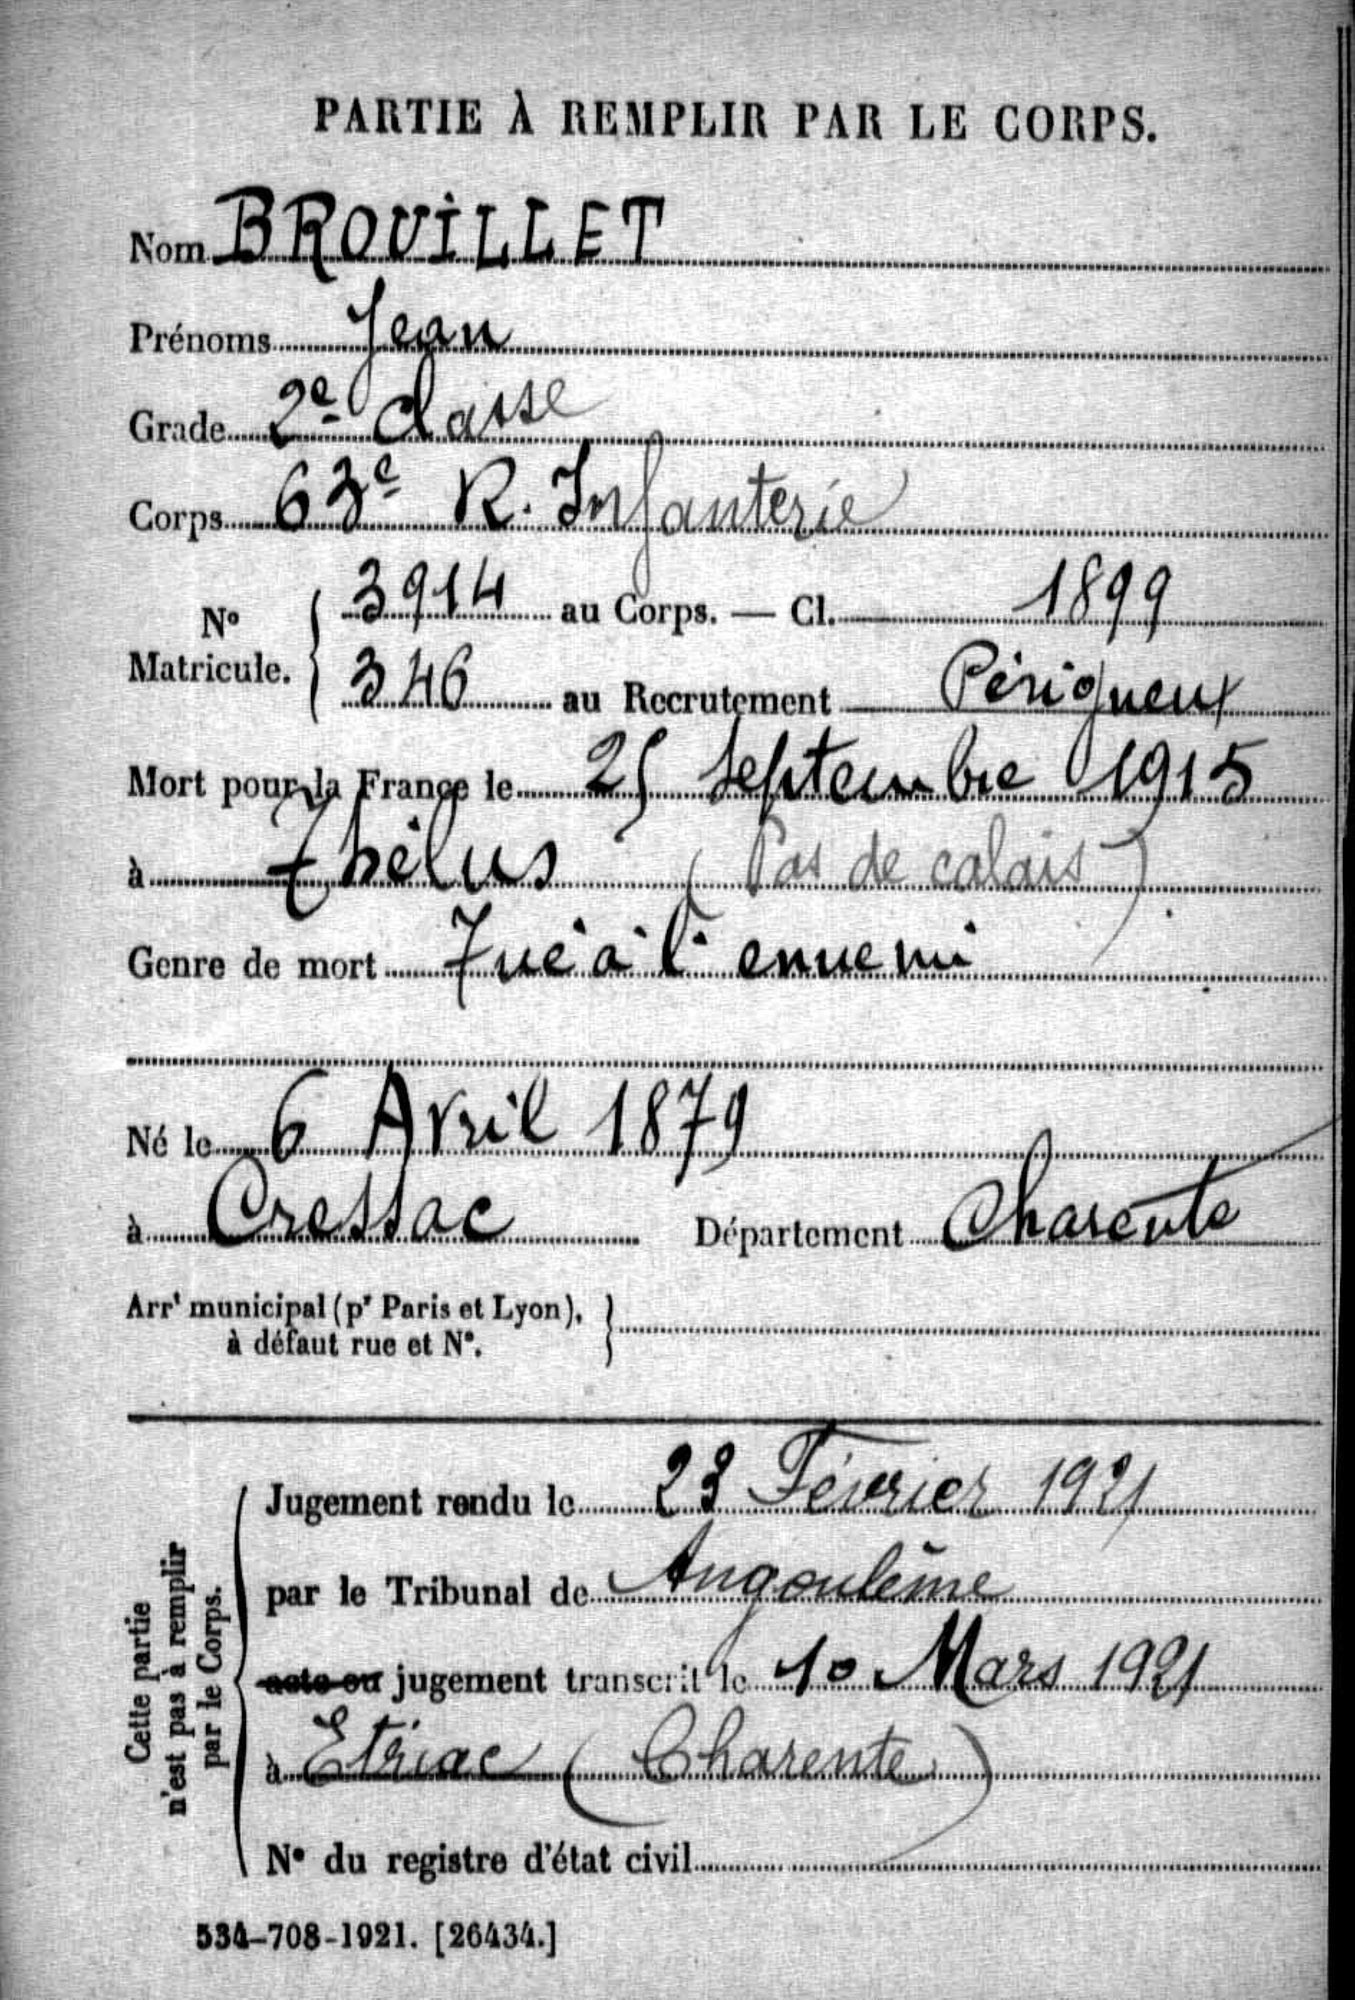 PARTIE À REMPLIR PAR LE CORPS.
Nom BROUILLET
Prénoms Jean
Grade 2e classe
Corps 63e R. Infanterie
No Matricule. { 3914 au Corps. — Cl. 1899
346 au Recrutement Périgueux
Mort pour la France le 25 Septembre 1915
à Thélus (Pas de calais)
Genre de mort Tué à l'ennemi
Né le 6 Avril 1879
à Cressac Département Charente
Arrt municipal (pr Paris et Lyon),
à défaut rue et No.
Cette partie
n'est pas à remplir
par le Corps.
Jugement rendu le 23 Février 1921
par le Tribunal de Angoulême
acte ou jugement transcrit le 10 Mars 1921
à Etriac (Charente)
No du registre d'état civil
534-708-1921. [26434.]